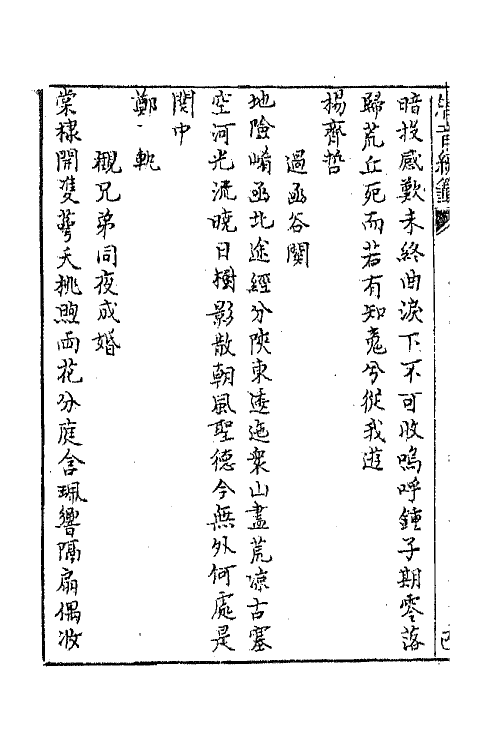 暗投感歎未終曲淚下不可收嗚呼鍾子期零落
歸荒丘死而若有知魂兮從我遊
楊齊哲
過函谷關
地險崤函北途經分陝東逶迤衆山盡荒凉古塞
空河光流曉日樹影散朝風聖德今無外何處是
関中
鄭軌
觀兄弟同夜成婚
棠棣開雙萼夭桃煦兩花分庭含珮響隔扇偶妝